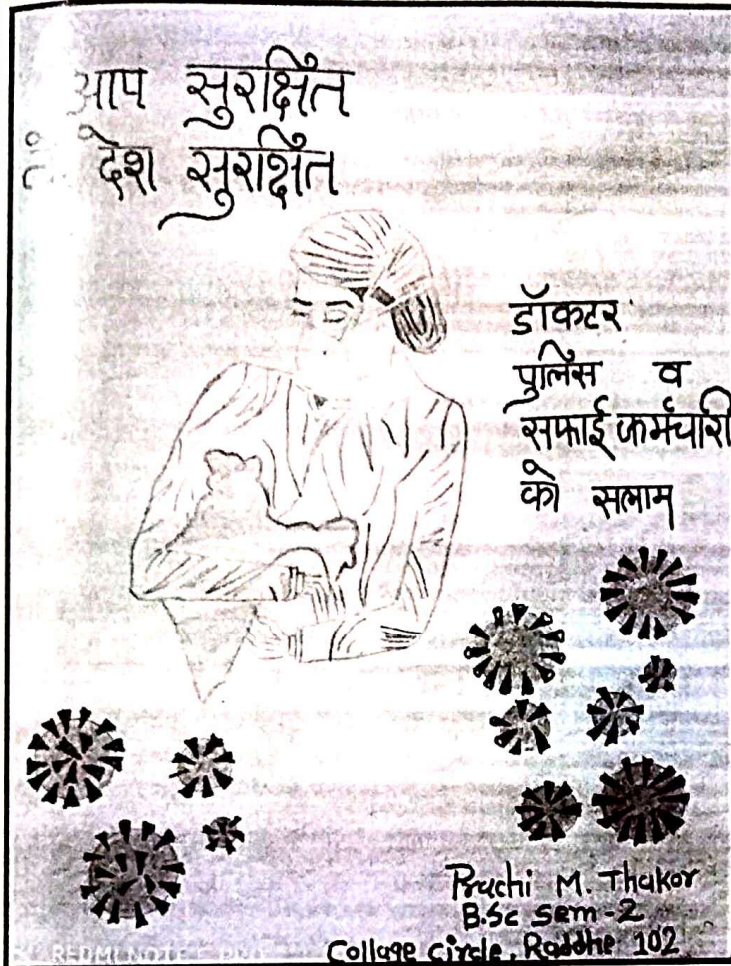 आप सुरक्षित
तो देश सुरक्षित
डॉकटर
पुलिस व
सफाई कर्मचारी
को सलाम
Prachi M. Thakor
B.Sc Sem-2
Collage circle, Raddhe 102
REDMI NOTE